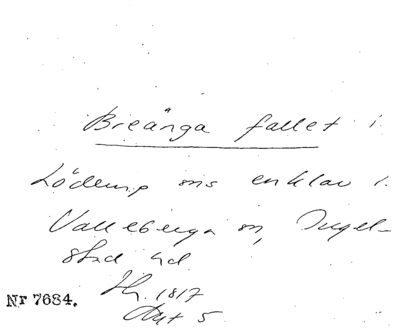 Breänga fallet i
Löderup sns enklav i.
Valleberga sn, Ingel-
stad hd.
Nr 7684. 1817
Akt 5